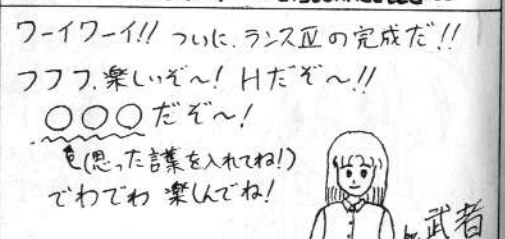 ワーイワーイ!! ついに、ランスⅣの完成だ!!
フフフ、楽しいぞ〜! Hだぞ〜!!
○○○だぞ〜!
(思った言葉を入れてね!)
でわでわ 楽しんでね!
武者